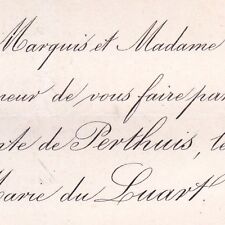 Marquis et Madame
neur de vous faire par
te de Perthuis, le
Marie du Luart.